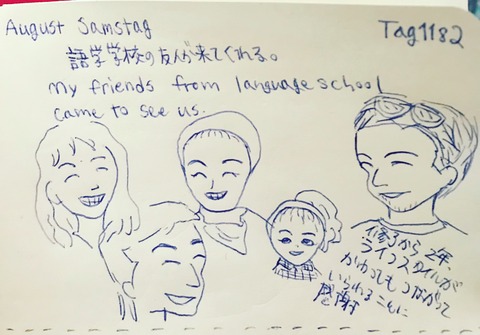 August Samstag
Tag1182
語学学校の友人が来てくれる。
my friends from language school
came to see us.
修了から2年、
ライフスタイルが
かわってもつながって
いられることに
感謝